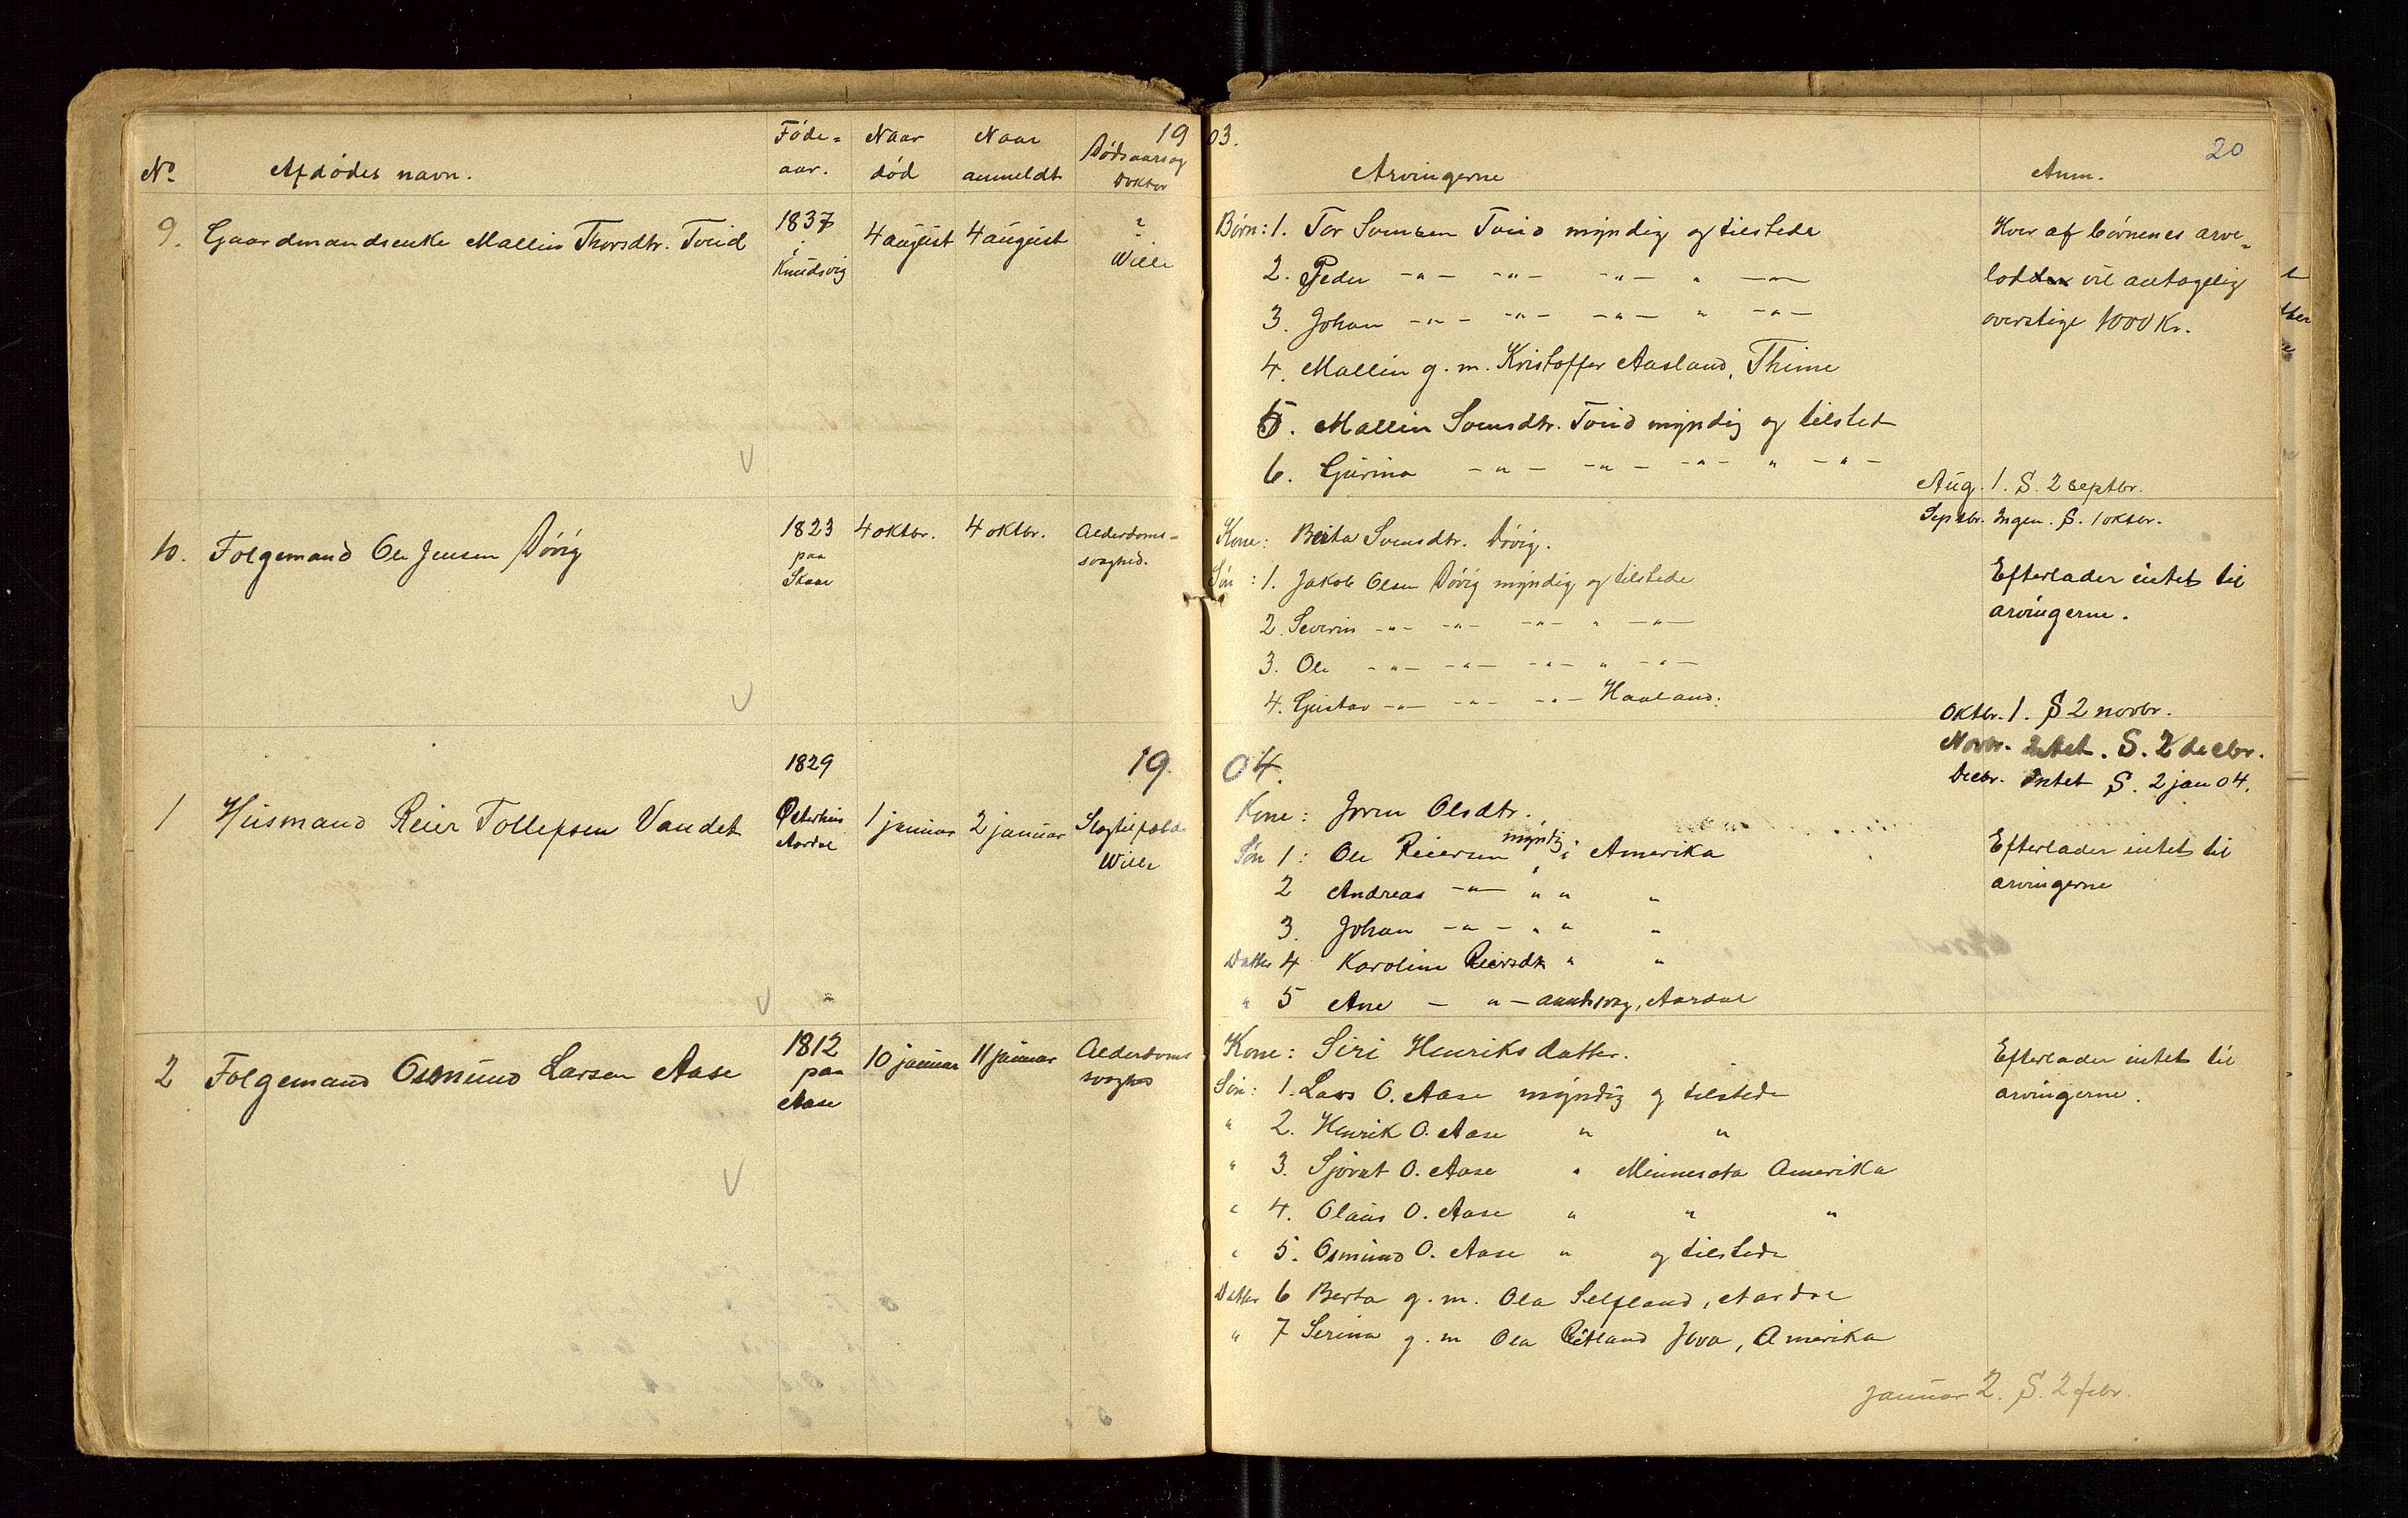 19 03.
20
No. Afdødes navn. Føde=aar. Naar død Naar anmeldt Dødsaarsag Doktor Arvingerne Anm.
9. Gaardmandsenke Mallin Thorsdtr. Tveid 1837 i Knudsvig 4 august 4 august ? Wille
Børn: 1. Tor Svensen Tveid myndig og tilstede
2. Peder -"- -"- -"- " -"-
3. Johan -"- -"- -"- " -"-
4. Mallin g. m. Kristoffer Aasland, Thime
5. Mallin Svensdtr. Tveid myndig og tilsted
6. Gurina -"- -"- -"- " -"-
Hver af børnenes arve=
lodder vil antagelig
overstige 1000 Kr.
Aug. 1. S. 2 septbr.
Septbr. Ingen. S. 1 oktbr.
10. Folgemand Ole Jensen Døvig 1823 paa Skaar 4 oktbr. 4 oktbr. Alderdoms-
svaghed.
Kone: Berta Svensdtr. Døvig.
Søn: 1. Jakob Olsen Døvig myndig og tilstede
2. Severin -"- -"- -"- " -"-
3. Ole -"- -"- -"- " -"-
4. Gustav -"- -"- -"- Haaland.
Efterlader intet til
arvingerne.
Oktbr. 1. S 2 novbr.
Novbr. Intet. S. 2 decbr.
Decbr. Intet S. 2 jan 04.
19 04.
1 Husmand Reier Tollefsen Vandet 1829 Østerhus Aardal 1 januar 2 januar Slagtilfælde
Wille
Kone: Joren Olsdtr.
Søn 1: Ole Reiersen myndig i Amerika
2 Andreas -"- " " "
3. Johan -"- " " "
Datter 4 Karoline Reiersdtr " "
" 5 Ane - " - aandssvag, Aardal
Efterlader intet til
arvingerne
2 Folgemand Osmund Larsen Aase 1812 paa Aase 10 januar 11 januar Alderdoms
svaghed
Kone: Siri Henriksdatter.
Søn: 1. Lars O. Aase myndig og tilstede
" 2. Henrik O. Aase " "
" 3. Sjovat O. Aase " Minnesota Amerika
" 4. Olaus O. Aase " " "
" 5. Osmund O. Aase " og tilstede
Datter 6 Berta g. m. Ola Selfland, Aardal
" 7 Serina g. m Ola Ritland Jova, Amerika
Efterlader intet til
arvingerne.
januar 2. S. 2 febr.